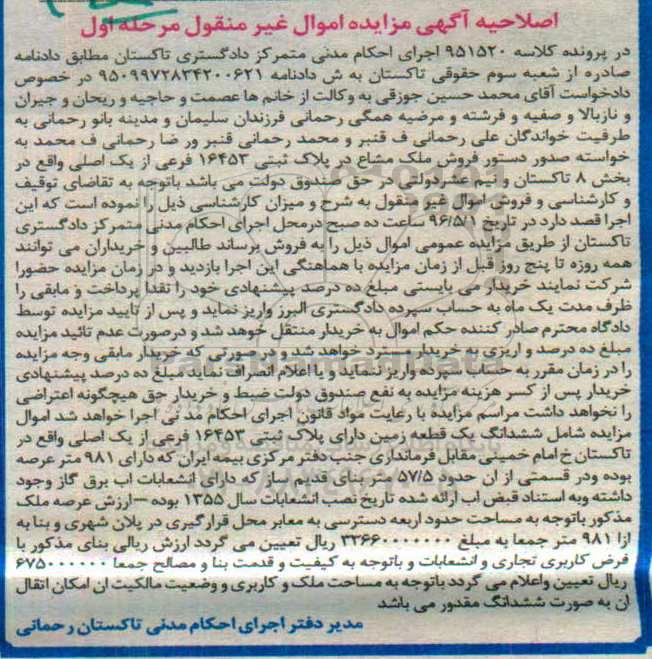 اصلاحیه آگهی مزایده اموال غیر منقول مرحله اول
در پرونده کلاسه ۹۵۱۵۲۰ اجرای احکام مدنی متمرکز دادگستری تاکستان مطابق دادنامه
صادره از شعبه سوم حقوقی تاکستان به ش دادنامه ۹۵۰۹۹۷۲۸۳۴۲۰۰۶۲۱ در خصوص
دادخواست آقای محمد حسین جوزقی به وکالت از خانم ها عصمت و حاجیه و ریحان و جیران
و نازبالا و صفیه و فرشته و مرضیه همگی رحمانی فرزندان سلیمان و مدینه بانو رحمانی به
طرفیت خواندگان علی رحمانی ف قنبر و محمد رحمانی قنبر ور ضا رحمانی ف محمد به
خواسته صدور دستور فروش ملک مشاع در پلاک ثبتی ۱۶۴۵۳ فرعی از یک اصلی واقع در
بخش ۸ تاکستان و نیم عشردولتی در حق صندوق دولت می باشد باتوجه به تقاضای توقیف
و کارشناسی و فروش اموال غیر منقول به شرح و میزان کارشناسی ذیل را نموده است که این
اجرا قصد دارد در تاریخ ۹۶/۵/۱ ساعت ده صبح درمحل اجرای احکام مدنی متمرکز دادگستری
تاکستان از طریق مزایده عمومی اموال ذیل را به فروش برساند طالبین و خریداران می توانند
همه روزه تا پنج روز قبل از زمان مزایده با هماهنگی این اجرا بازدید و در زمان مزایده حضورا
شرکت نمایند خریدار می بایستی مبلغ ده درصد پیشنهادی خود را نقدا پرداخت و مابقی را
ظرف مدت یک ماه به حساب سپرده دادگستری البرز واریز نماید و پس از تایید مزایده توسط
دادگاه محترم صادر کننده حکم اموال به خریدار منتقل خوهد شد و درصورت عدم تائید مزایده
مبلغ ده درصد و اریزی به خریدار مسترد خواهد شد و در صورتی که خریدار مابقی وجه مزایده
را در زمان مقرر به حساب سپرده واریز ننماید و یا اعلام انصراف نماید مبلغ ده درصد پیشنهادی
خریدار پس از کسر هزینه مزایده به نفع صندوق دولت ضبط و خریدار حق هیچگونه اعتراضی
را نخواهد داشت مراسم مزایده با رعایت مواد قانون اجرای احکام مد نی اجرا خواهد شد اموال
مزایده شامل ششدانگ یک قطعه زمین دارای پلاک ثبتی ۱۶۴۵۳ فرعی از یک اصلی واقع در
تاکستان خ امام خمینی مقابل فرمانداری جنب دفتر مرکزی بیمه ایران که دارای ۹۸۱ متر عرصه
بوده ودر قسمتی از ان حدود ۵۷/۵ متر بنای قدیم ساز که دارای انشعابات اب برق گاز وجود
داشته وبه استناد قبض اب ارائه شده تاریخ نصب انشعابات سال ۱۳۵۵ بوده –ارزش عرصه ملک
مذکور باتوجه به مساحت حدود اربعه دسترسی به معابر محل قرارگیری در پلان شهری و بنا به
ازا ۹۸۱ متر جمعا به مبلغ ۳۳۶۶۰۰۰۰۰۰۰ ریال تعیین می گردد ارزش ریالی بنای مذکور با
فرض کاربری تجاری و انشعابات و باتوجه به کیفیت و قدمت بنا و مصالح جمعا ۶۷۵۰۰۰۰۰۰
ریال تعیین واعلام می گردد باتوجه به مساحت ملک و کاربری و وضعیت مالکیت ان امکان اتقال
ان به صورت ششدانگ مقدور می باشد
مدیر دفتر اجرای احکام مدنی تاکستان رحمانی